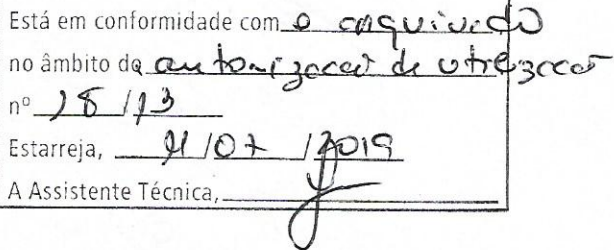 Está em conformidade com o arquivado
no âmbito da autorização de utilização
nº 18/13
Estarreja, /07/2019
A Assistente Técnica,